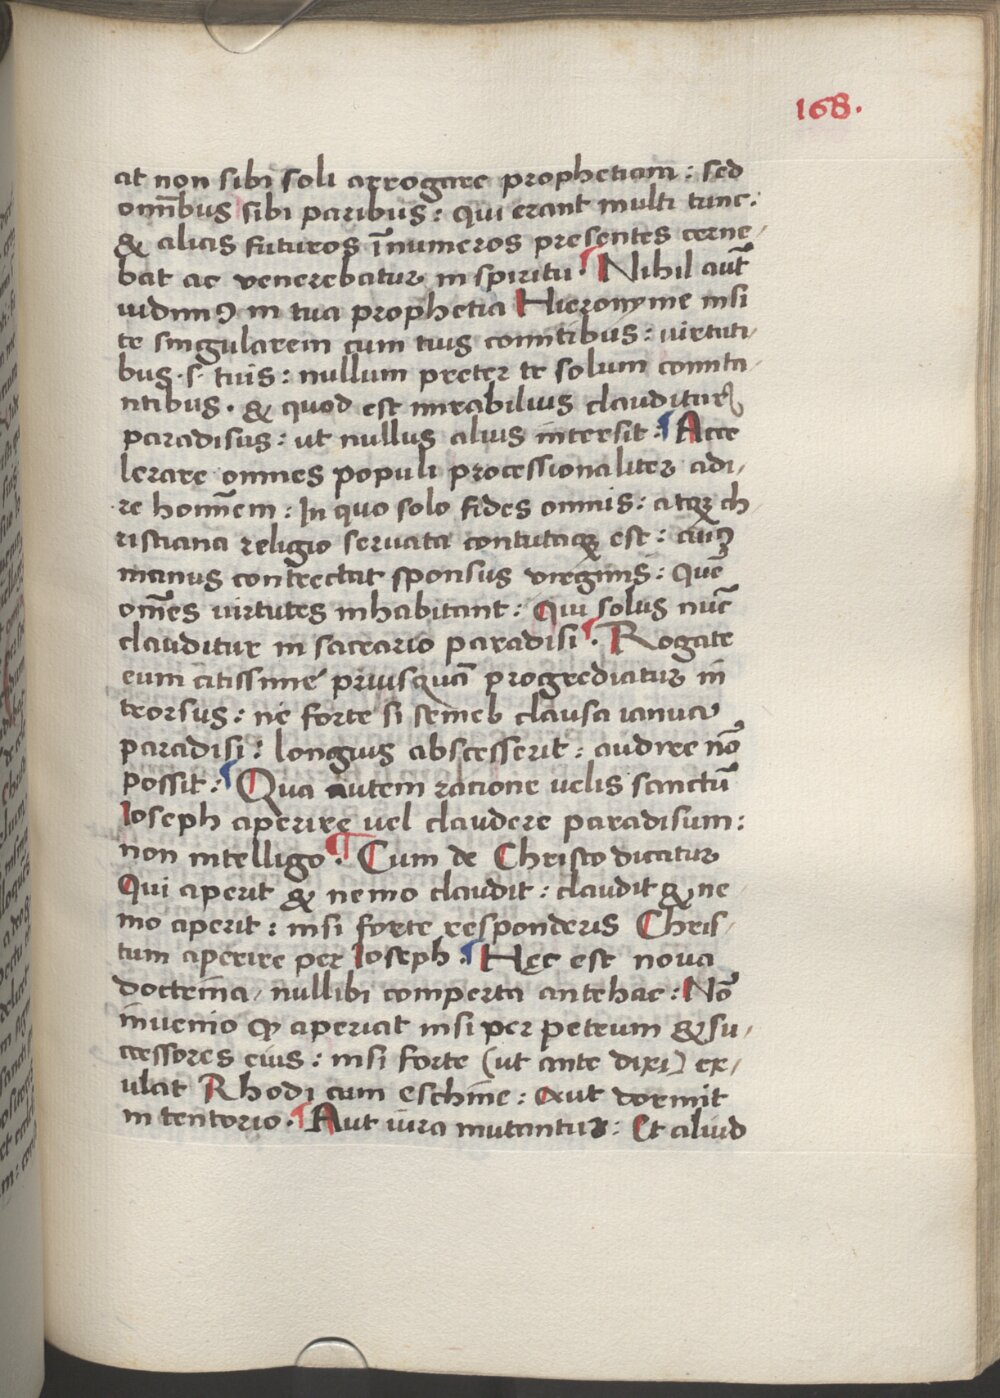 168.
at non sibi soli arrogare prophetiam : sed
om̄ibus sibi paribus : qui erant multi tunc :
& alias futuros īnumeros presentes cerne-
bat ac venerebatur in spiritu. Nihil aut̄
uidimꝰ in tua prophetia Hieronyme nisi
te singularem cum tuis comitibus : uirtuti-
bus .s. tuis : nullum preter te solum comita-
ntibus. & quod est mirabilius clauditur
paradisus : ut nullus alius intersit : Acce
lerare omnes populi processionaliter adi-
re hom̄em : In quo solo fides omnis : atqꝫ ch
ristiana religio seruata contutaqꝫ est : cuiꝰ
manus contrectat sponsus virginis : Quē
om̄es uirtutes inhabitant : Qui solus nūc
clauditur in sacrario paradisi. Rogate
eum citissime priusquā progrediatur in
teorsus : ne forte si semel clausa ianua
paradisi : longius abscesserit : audire nō
possit : Qua autem racione uelis sanctū
Ioseph aperire uel claudere paradisum :
non intelligo. Cum de Christo dicatur
Qui aperit & nemo claudit : claudit & ne
mo aperit : nisi forte responderis Chris-
tum aperire per Ioseph. Hęc est noua
doctrina, nullibi comperta antehac : Nō
inuenio ꝙ aperiat nisi per petrum & su-
ccessores eius : nisi forte (ut ante dixi) ex-
ulat Rhodi cum eschine : Aut dormit
in tentorio. Aut iura mutantur : Et aliud